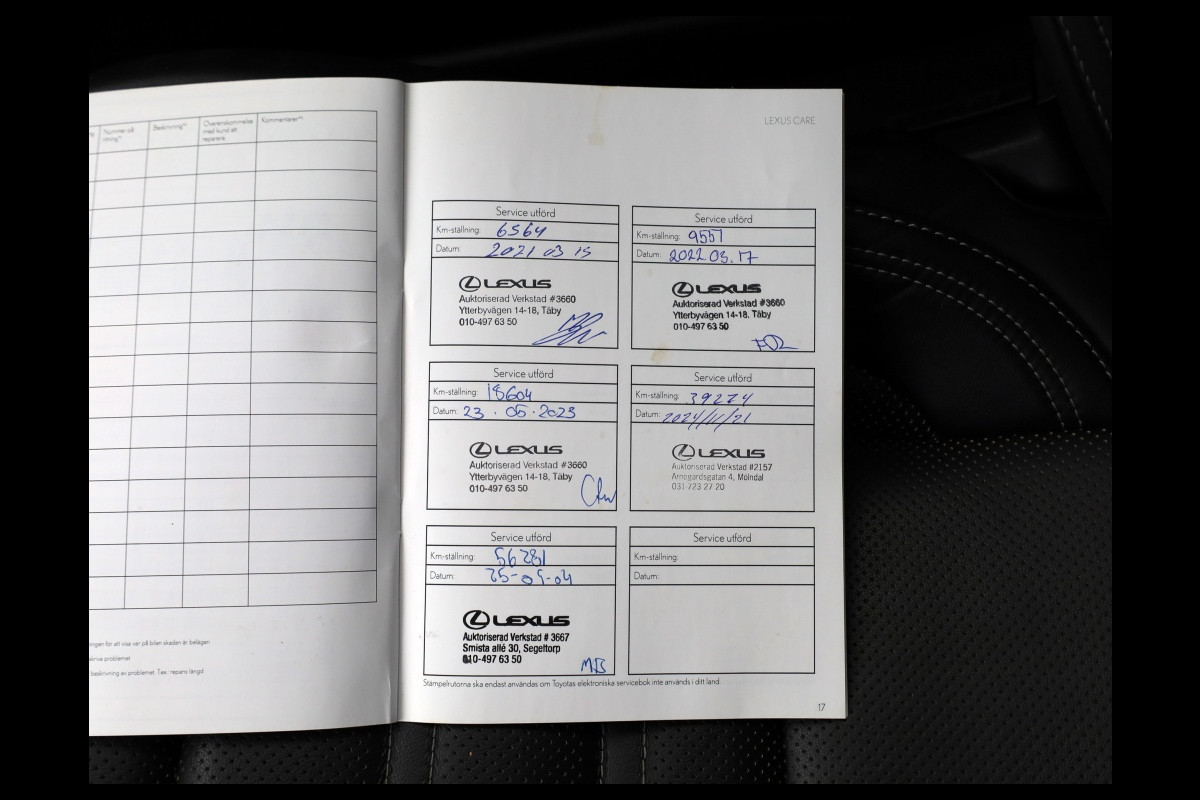 Nummer på
ritning**
Beskrivning**
Överenskommelse
med kund att
reparera
Kommentarer**
ningen för att visa var på bilen skadan är belägen
skriva problemet
beskrivning av problemet. T.ex.: repans längd
LEXUS CARE
Service utförd
Km-ställning: 6564
Datum: 2021 03 15
LEXUS
Auktoriserad Verkstad #3660
Ytterbyvägen 14-18, Täby
010-497 63 50
Service utförd
Km-ställning: 9557
Datum: 2022.03.17
LEXUS
Auktoriserad Verkstad #3660
Ytterbyvägen 14-18, Täby
010-497 63 50
Service utförd
Km-ställning: 18604
Datum: 23.05.2023
LEXUS
Auktoriserad Verkstad #3660
Ytterbyvägen 14-18, Täby
010-497 63 50
Service utförd
Km-ställning: 39274
Datum: 2024/11/21
LEXUS
Auktoriserad Verkstad #2157
Arnegårdsgatan 4, Mölndal
031 723 27 20
Service utförd
Km-ställning: 56281
Datum: 25-09-04
LEXUS
Auktoriserad Verkstad # 3667
Smista allé 30, Segeltorp
010-497 63 50
MB
Service utförd
Km-ställning:
Datum:
Stämpelrutorna ska endast användas om Toyotas elektroniska servicebok inte används i ditt land.
17